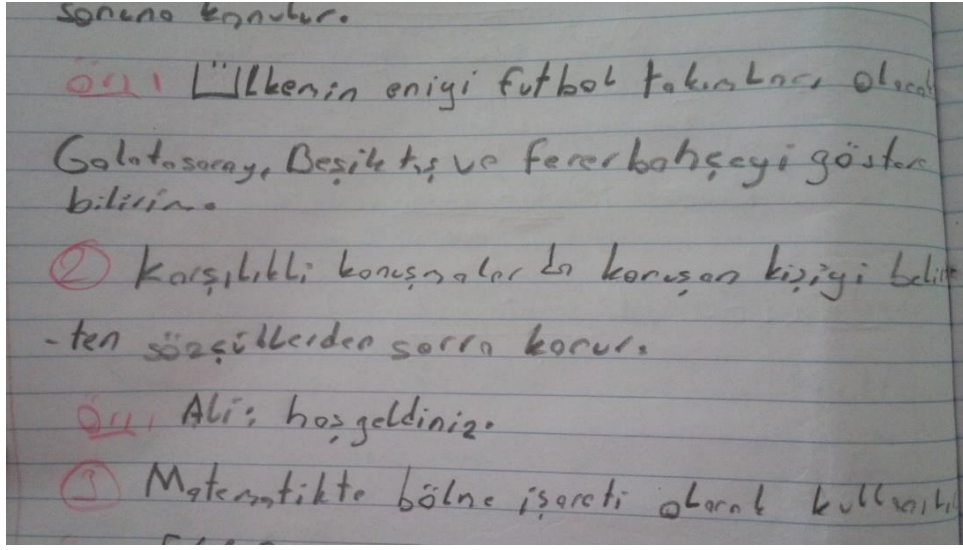 sonuna konulur.
Ör: Ülkenin eniyi futbol takımları olarak
Galatasaray, Beşiktaş ve Fenerbahçeyi göstere
bilirim.
② Karşılıklı konuşmalarda konuşan kişiyi belir
-ten sözcüklerden sonra konur.
Ör: Ali: hoşgeldiniz.
③ Matematikte bölme işareti olarak kullanılır